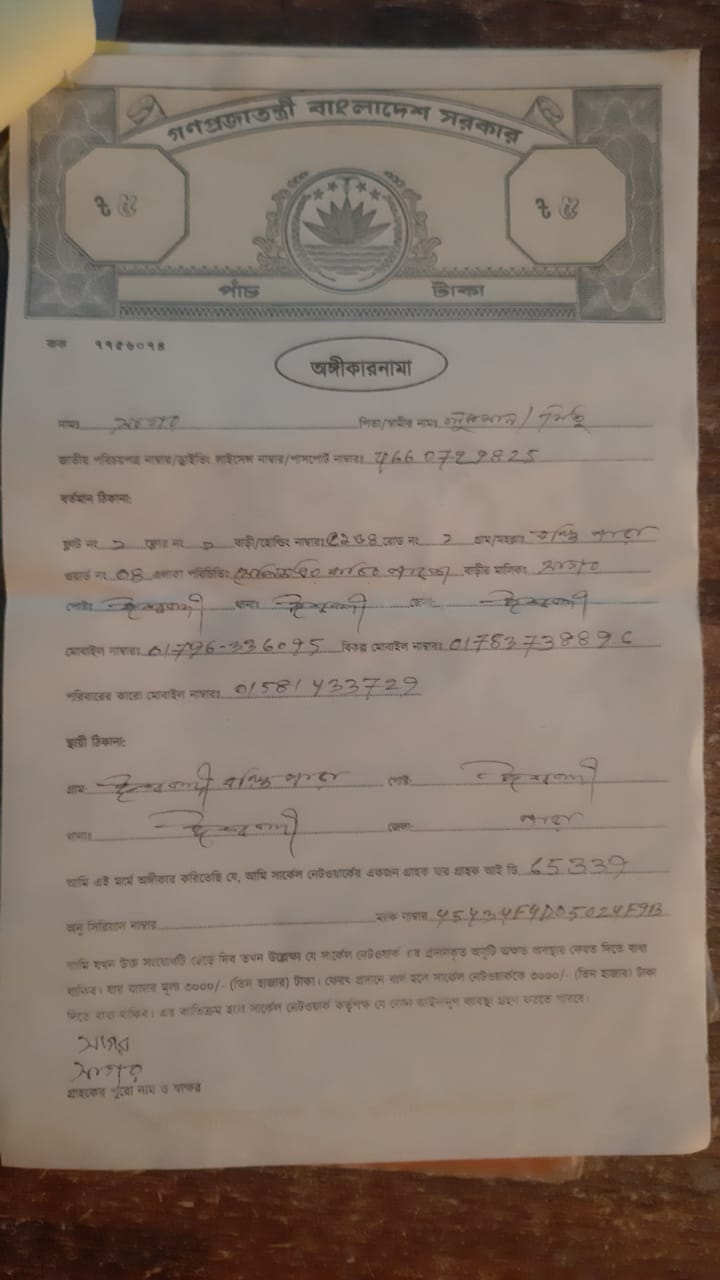 গণপ্রজাতন্ত্রী বাংলাদেশ সরকার
৳ ৫ ৳ ৫
পাঁচ টাকা
কক ১১৫৬০৭৪
অঙ্গীকারনামা
নামঃ সাগর পিতা/স্বামীর নামঃ
জাতীয় পরিচয়পত্র নাম্বার/ড্রাইভিং লাইসেন্স নাম্বার/পাসপোর্ট নাম্বারঃ 4660729825
বর্তমান ঠিকানা:
ফ্লাট নং ফ্লোর নং বাড়ী/হোল্ডিং নাম্বারঃ রোড নং গ্রাম/মহল্লাঃ পাড়া
ওয়ার্ড নং 04 এলাকা পরিচিতিঃ বাড়ীর মালিকঃ সাগর
পোষ্টঃ ঈশ্বরদী থানাঃ ঈশ্বরদী জেলা: ঈশ্বরদী
মোবাইল নাম্বারঃ 01796-336095 বিকল্প মোবাইল নাম্বারঃ
পরিবারের কারো মোবাইল নাম্বারঃ 01581433729
স্থায়ী ঠিকানা:
গ্রাম: ঈশ্বরদী পাড়া পোষ্ট: ঈশ্বরদী
থানাঃ ঈশ্বরদী জেলা:
আমি এই মর্মে অঙ্গীকার করিতেছি যে, আমি সার্কেল নেটওয়ার্কের একজন গ্রাহক যার গ্রাহক আই ডি 65339
অনু সিরিয়াল নাম্বার ম্যাক নাম্বার
আমি যখন উক্ত সংযোগটি ছেড়ে দিব তখন উল্লেক্ষ্য যে সার্কেল নেটওয়ার্ক এর প্রদানকৃত অনুটি অক্ষত অবস্থায় ফেরত দিতে বাধ্য
থাকিব। যার বাজার মূল্য ৩০০০/- (তিন হাজার) টাকা। ফেরৎ প্রদানে ব্যর্থ হলে সার্কেল নেটওয়ার্ককে ৩০০০/- (তিন হাজার) টাকা
দিতে বাধ্য থাকিব। এর ব্যতিক্রম হলে সার্কেল নেটওয়ার্ক কর্তৃপক্ষ যে কোন আইনানুগ ব্যবস্থা গ্রহণ করতে পারবে।
সাগর
সাগর
গ্রাহকের পুরো নাম ও স্বাক্ষর